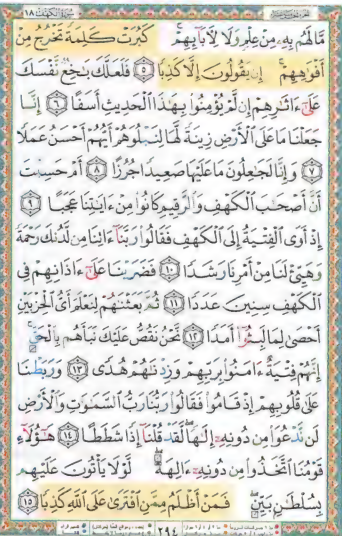 سورة الكهف ١٨
مَّا لَهُم بِهِۦ مِنْ عِلْمٍ وَلَا لِـَٔابَآئِهِمْ ۚ كَبُرَتْ كَلِمَةً تَخْرُجُ مِنْ
أَفْوَٰهِهِمْ ۚ إِن يَقُولُونَ إِلَّا كَذِبًا ٥ فَلَعَلَّكَ بَـٰخِعٌ نَّفْسَكَ
عَلَىٰٓ ءَاثَـٰرِهِمْ إِن لَّمْ يُؤْمِنُوا۟ بِهَـٰذَا ٱلْحَدِيثِ أَسَفًا ٦ إِنَّا
جَعَلْنَا مَا عَلَى ٱلْأَرْضِ زِينَةً لَّهَا لِنَبْلُوَهُمْ أَيُّهُمْ أَحْسَنُ عَمَلًا
٧ وَإِنَّا لَجَـٰعِلُونَ مَا عَلَيْهَا صَعِيدًا جُرُزًا ٨ أَمْ حَسِبْتَ
أَنَّ أَصْحَـٰبَ ٱلْكَهْفِ وَٱلرَّقِيمِ كَانُوا۟ مِنْ ءَايَـٰتِنَا عَجَبًا ٩
إِذْ أَوَى ٱلْفِتْيَةُ إِلَى ٱلْكَهْفِ فَقَالُوا۟ رَبَّنَآ ءَاتِنَا مِن لَّدُنكَ رَحْمَةً
وَهَيِّئْ لَنَا مِنْ أَمْرِنَا رَشَدًا ١٠ فَضَرَبْنَا عَلَىٰٓ ءَاذَانِهِمْ فِى
ٱلْكَهْفِ سِنِينَ عَدَدًا ١١ ثُمَّ بَعَثْنَـٰهُمْ لِنَعْلَمَ أَىُّ ٱلْحِزْبَيْنِ
أَحْصَىٰ لِمَا لَبِثُوٓا۟ أَمَدًا ١٢ نَّحْنُ نَقُصُّ عَلَيْكَ نَبَأَهُم بِٱلْحَقِّ ۚ
إِنَّهُمْ فِتْيَةٌ ءَامَنُوا۟ بِرَبِّهِمْ وَزِدْنَـٰهُمْ هُدًى ١٣ وَرَبَطْنَا
عَلَىٰ قُلُوبِهِمْ إِذْ قَامُوا۟ فَقَالُوا۟ رَبُّنَا رَبُّ ٱلسَّمَـٰوَٰتِ وَٱلْأَرْضِ
لَن نَّدْعُوَا۟ مِن دُونِهِۦٓ إِلَـٰهًا ۖ لَّقَدْ قُلْنَآ إِذًا شَطَطًا ١٤ هَـٰٓؤُلَآءِ
قَوْمُنَا ٱتَّخَذُوا۟ مِن دُونِهِۦٓ ءَالِهَةً ۖ لَّوْلَا يَأْتُونَ عَلَيْهِم
بِسُلْطَـٰنٍۭ بَيِّنٍ ۖ فَمَنْ أَظْلَمُ مِمَّنِ ٱفْتَرَىٰ عَلَى ٱللَّهِ كَذِبًا ١٥
٢٩٤